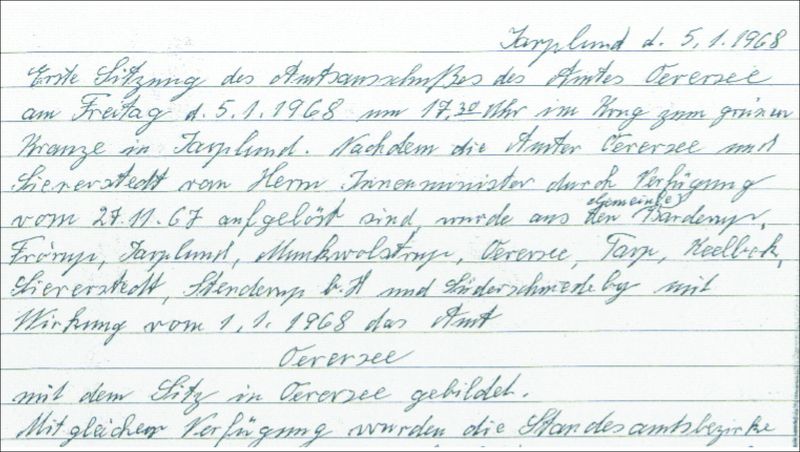 Jarplund d. 5.1.1968
Erste Sitzung des Amtsausschußes des Amtes Oeversee
am Freitag d. 5.1.1968 um 17.30 Uhr im Krug zum grünen
Kranze in Jarplund. Nachdem die Ämter Oeversee und
Sieverstedt von Herrn Innenminister durch Verfügung
vom 27.11.67 aufgelöst sind, wurde aus den Gemeinden Barderup,
Frörup, Jarplund, Munkwolstrup, Oeversee, Tarp, Keelbek,
Sieverstedt, Stenderup b.H und Süderschmedeby mit
Wirkung vom 1.1.1968 das Amt
Oeversee
mit dem Sitz in Oeversee gebildet.
Mit gleicher Verfügung wurden die Standesamtsbezirke